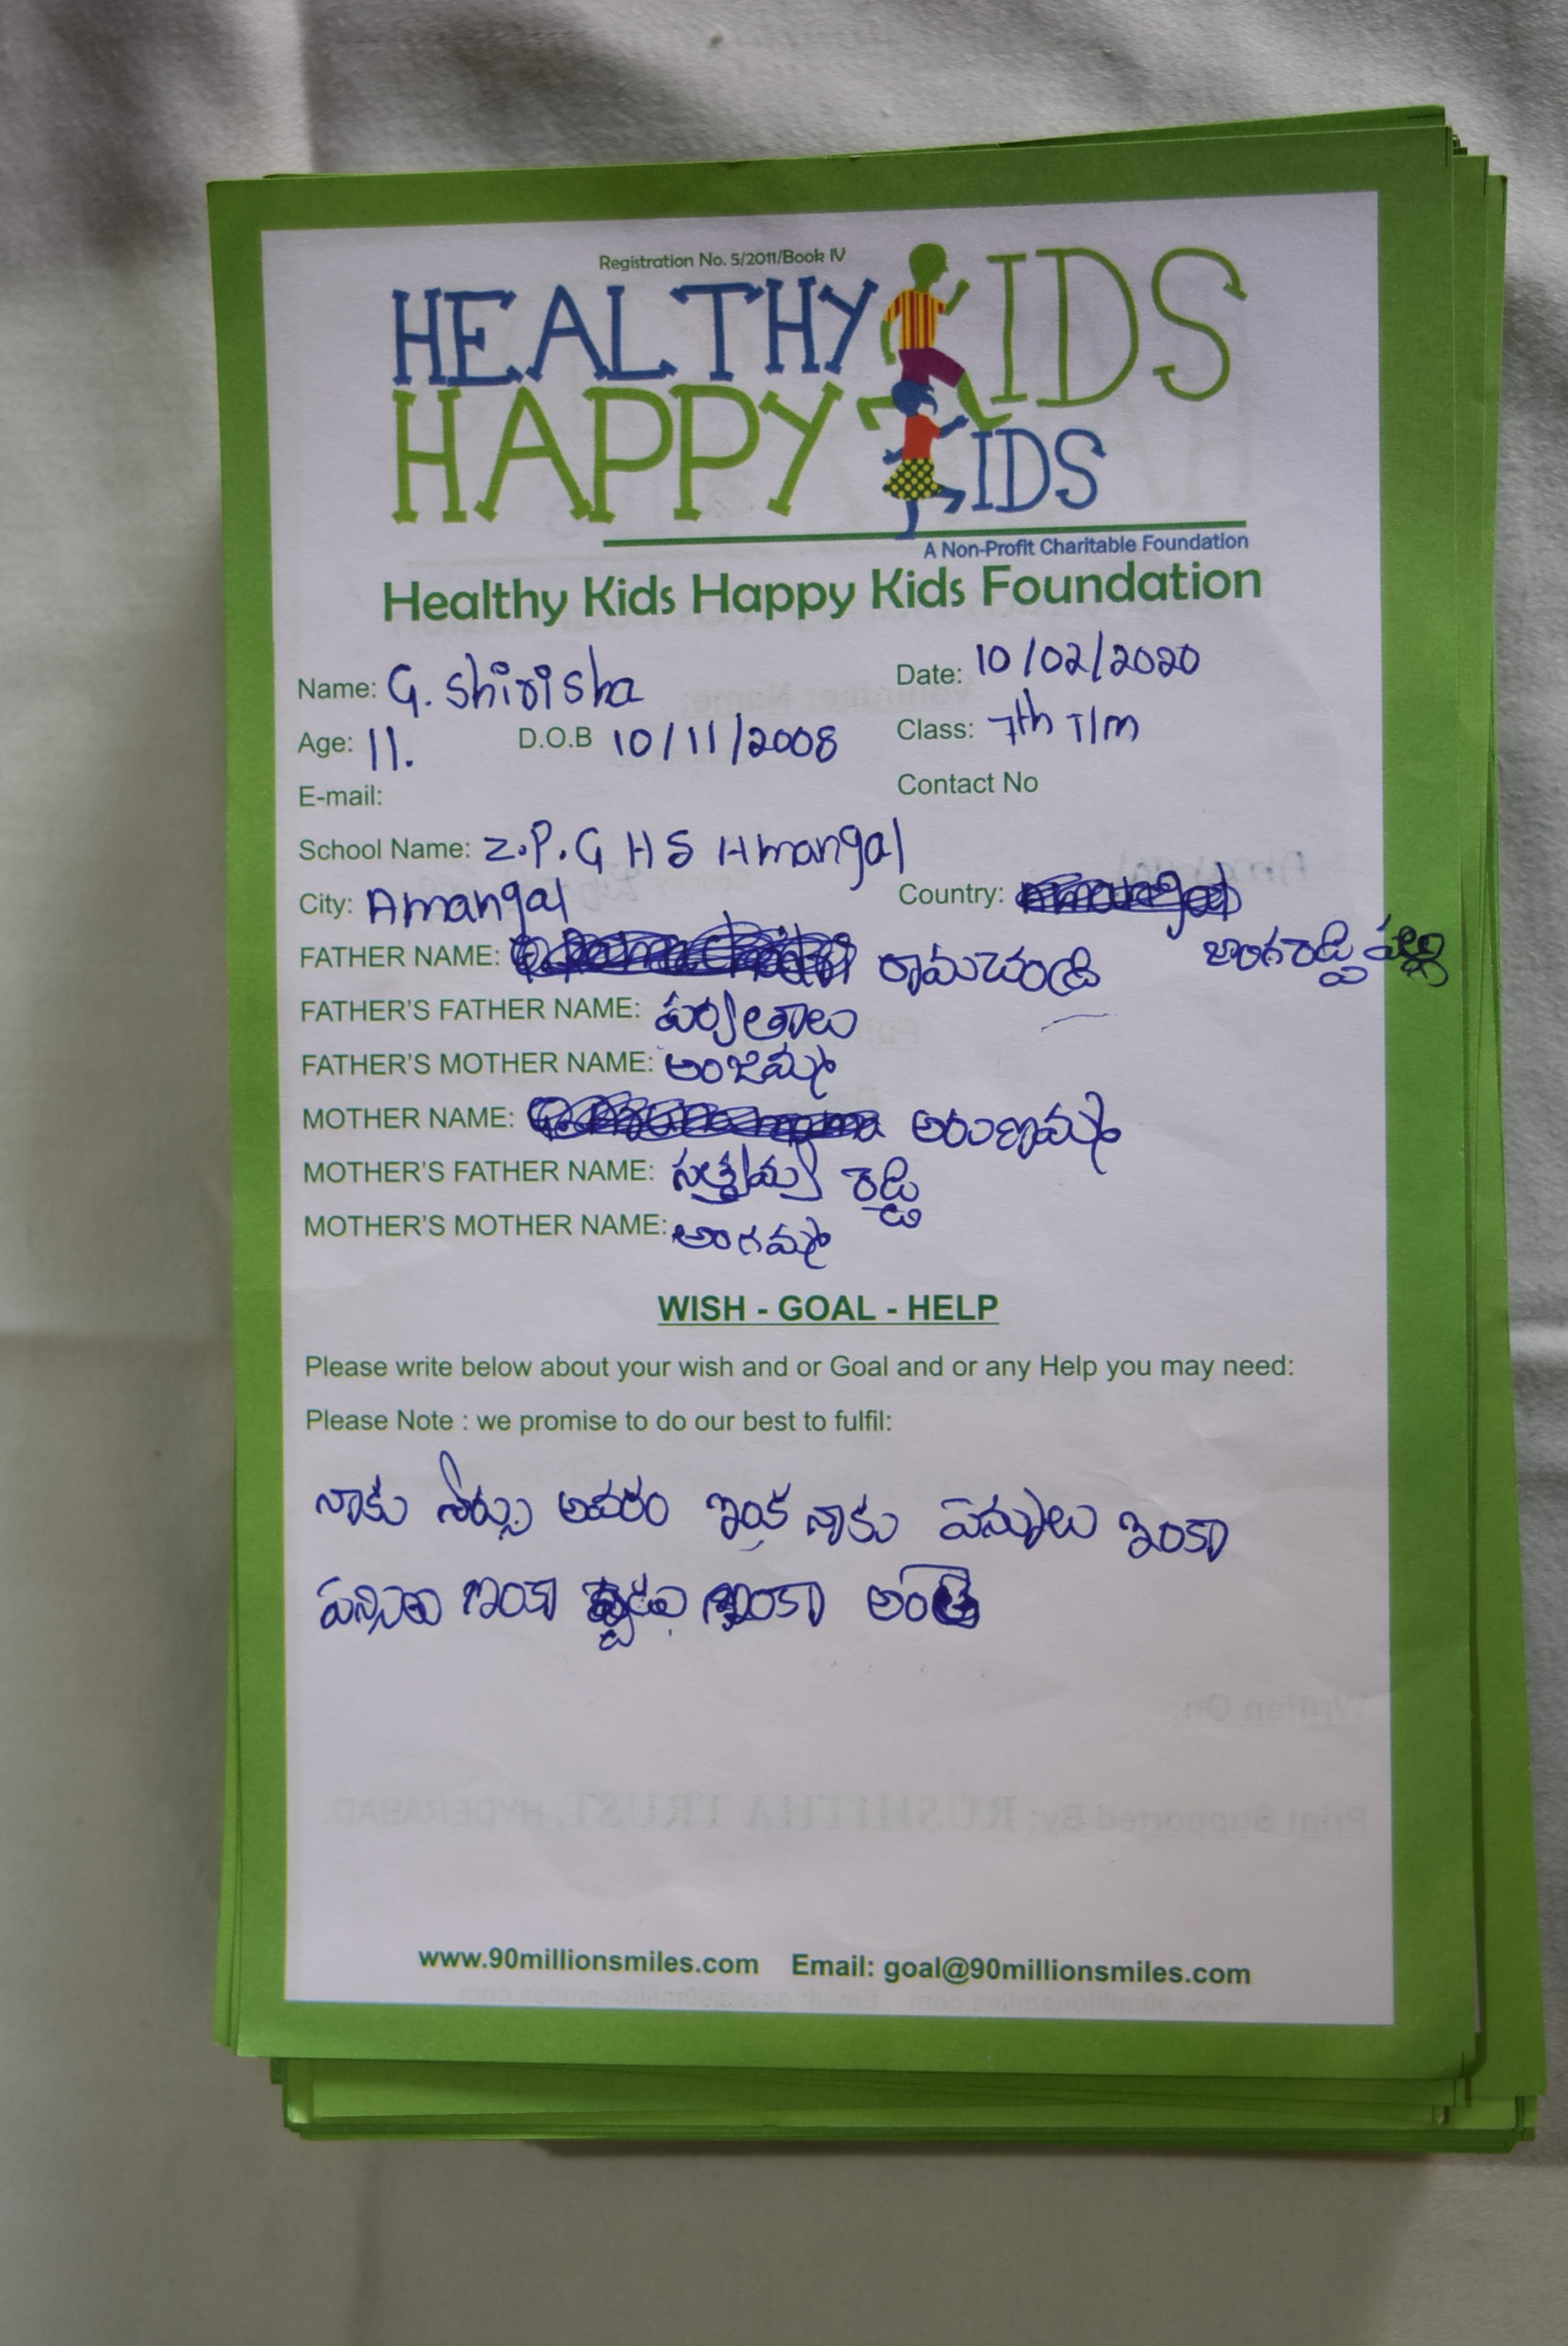 Registration No. 5/2011/Book IV
HEALTHY KIDS
HAPPY KIDS
A Non-Profit Charitable Foundation
Healthy Kids Happy Kids Foundation
Name: G. Shirisha Date: 10/02/2020
Age: 11. D.O.B 10/11/2008 Class: 7th T/m
E-mail: Contact No
School Name: Z.P.G H S Amangal
City: Amangal Country:
FATHER NAME: రామచంద్రి
FATHER'S FATHER NAME: పర్వతాలు
FATHER'S MOTHER NAME: అంజమ్మ
MOTHER NAME: అరుణమ్మ
MOTHER'S FATHER NAME: రెడ్డి
MOTHER'S MOTHER NAME: అంగమ్మ
WISH - GOAL - HELP
Please write below about your wish and or Goal and or any Help you may need:
Please Note : we promise to do our best to fulfil:
నాకు అవరం ఇంక నాకు పెన్నులు ఇంకా
ఇంకా ఇంకా అంతే
www.90millionsmiles.com Email: goal@90millionsmiles.com